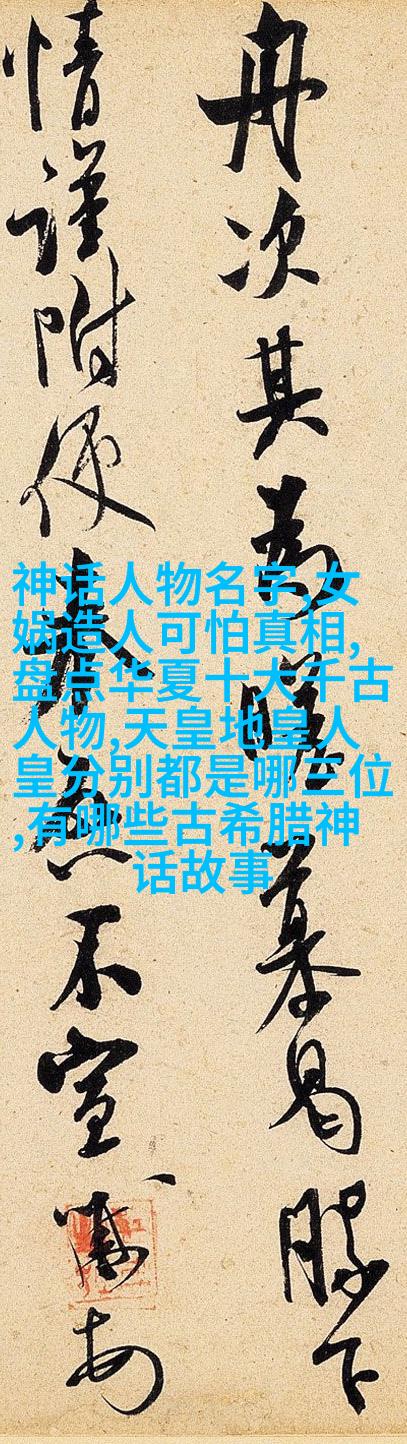 舟次其為瞻慕曷勝下
情謹附奉不宣
神话人物名字,女
娲造人可怕真相,
盘点华夏十大千古
人物,天皇地皇人
皇分别都是哪三位
,有哪些古希腊神
话故事